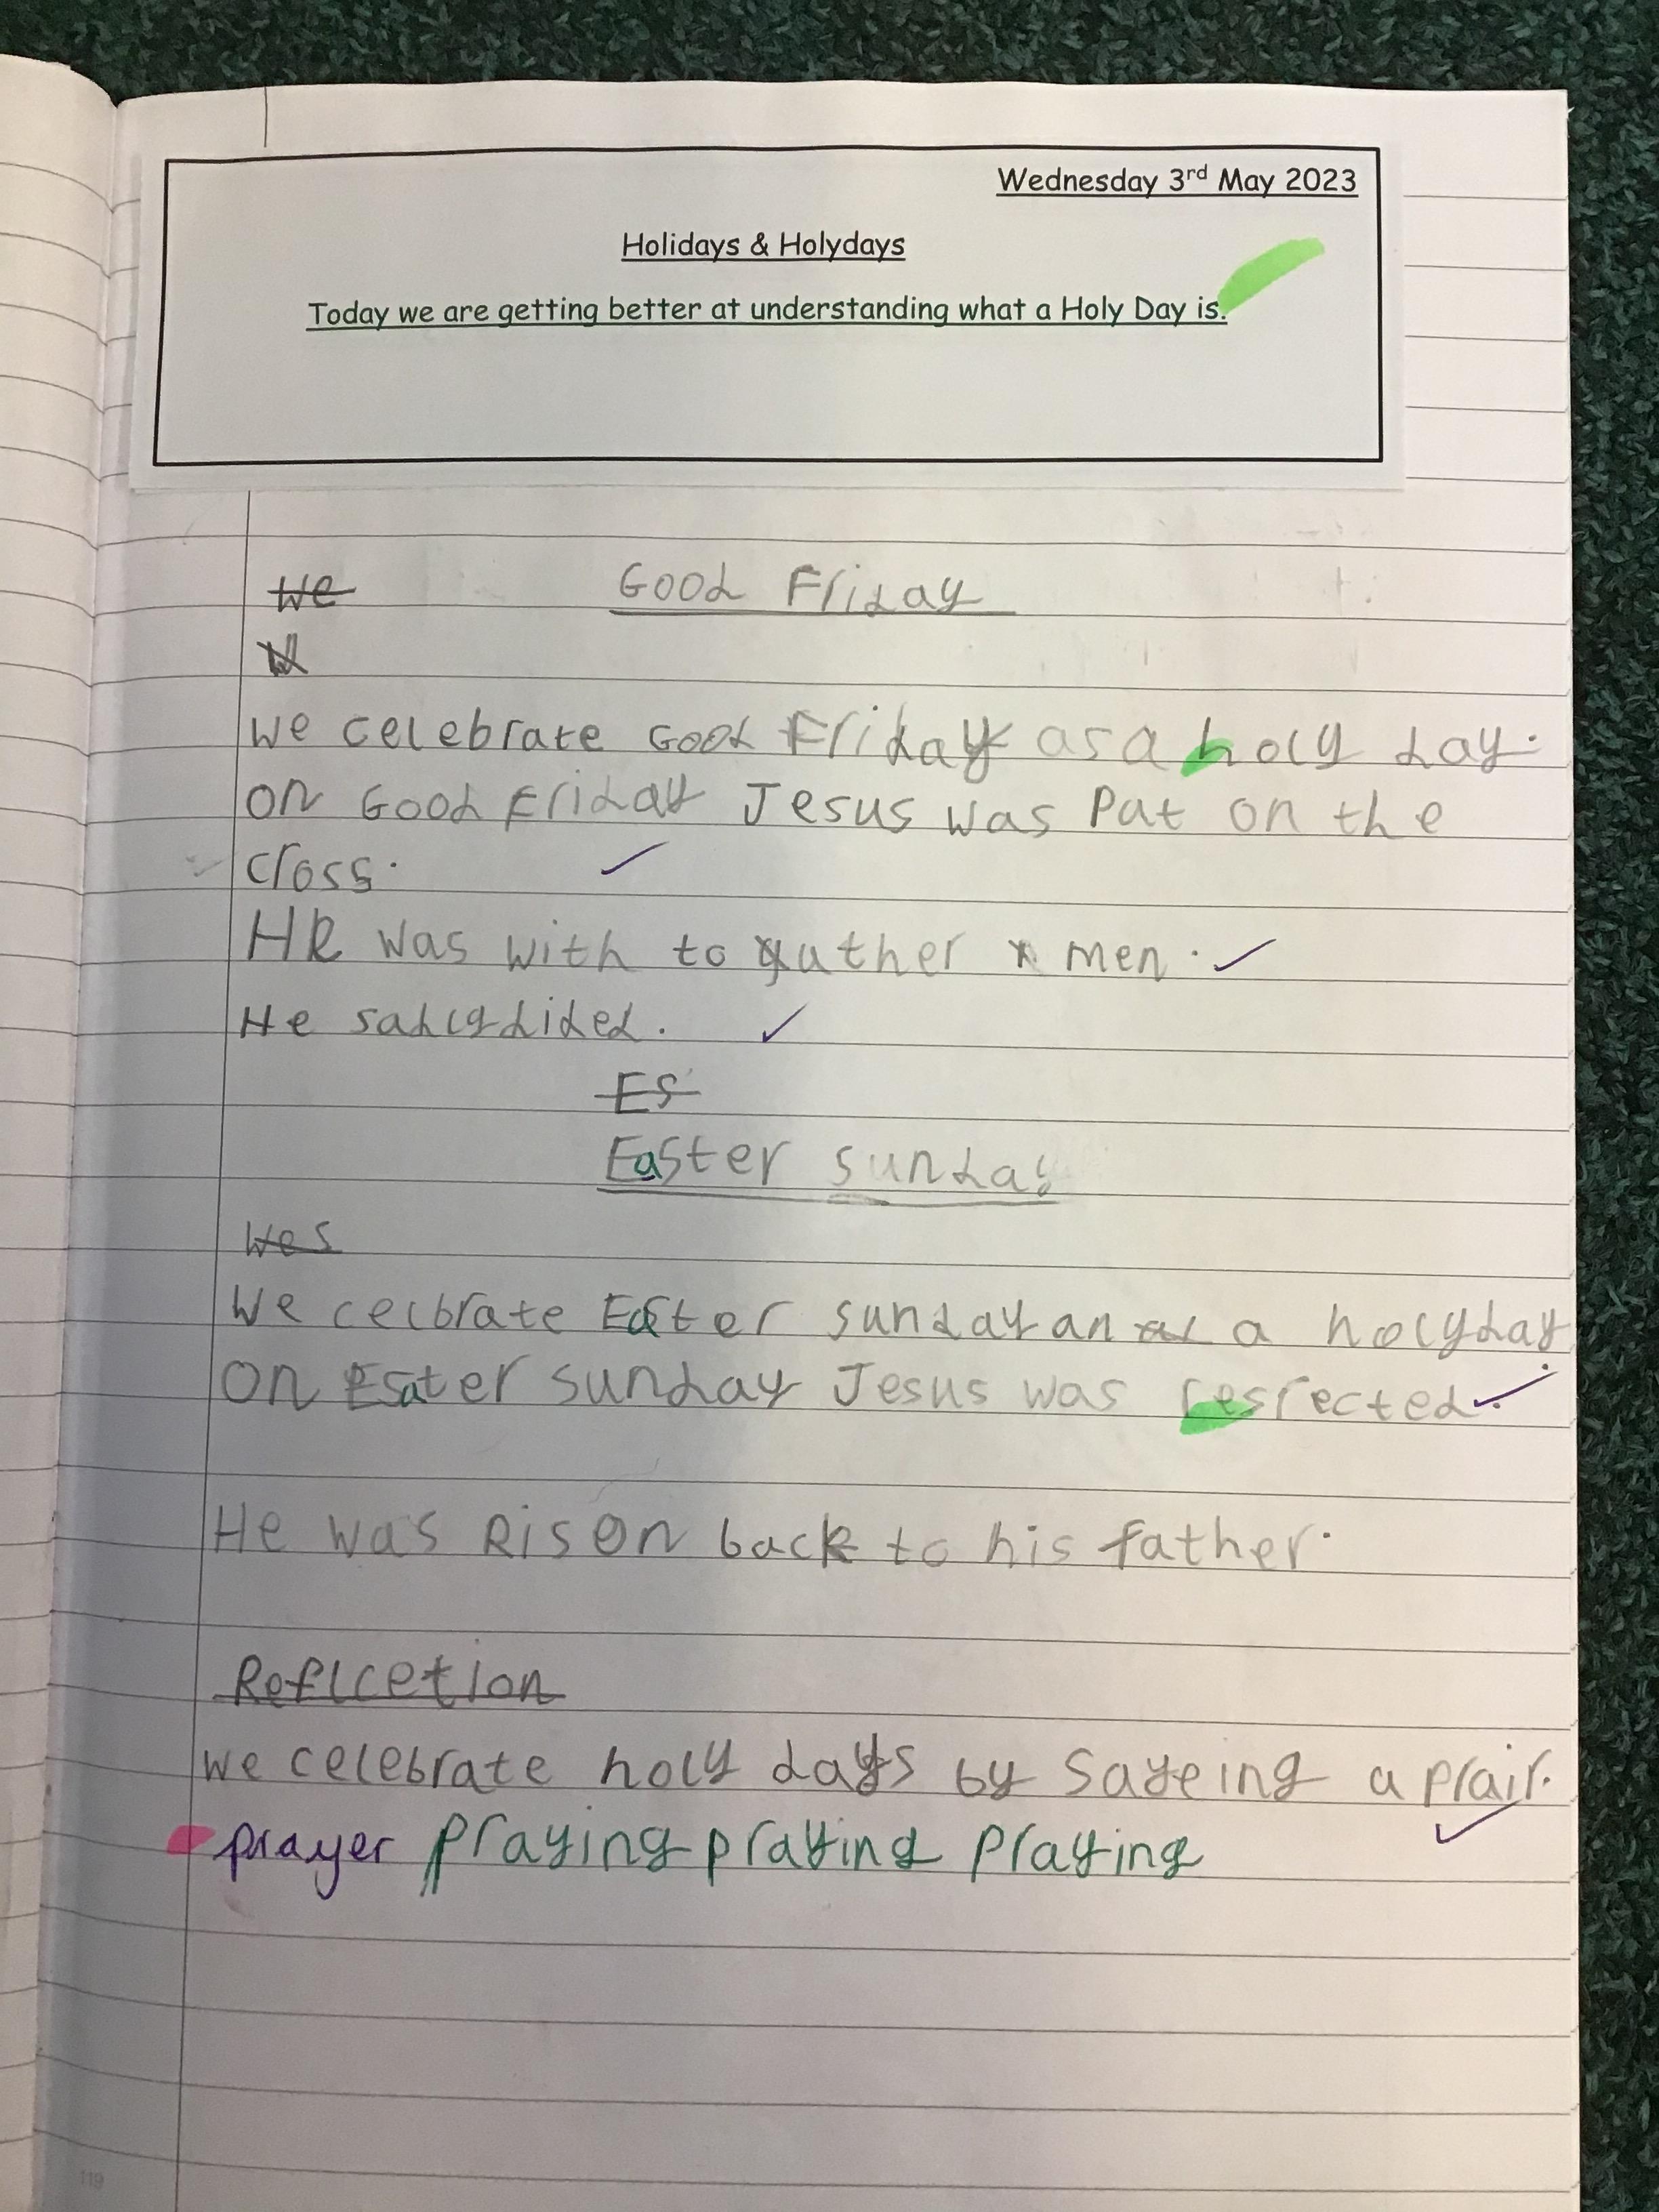 Wednesday 3rd May 2023
Holidays & Holydays
Today we are getting better at understanding what a Holy Day is.
We Good Friday
W
We celebrate Good Friday as a holy day.
on Good Friday Jesus was Put on the
cross.
He was with to uther men.
He sadly dided.
Es
Easter sunday
Wes
We celbrate Easter sunday an as a holyday
on Esater sunday Jesus was resrected.
He was Rison back to his father.
Reflcetion
we celebrate holy days by Sayeing a prair.
prayer praying praying praying
119